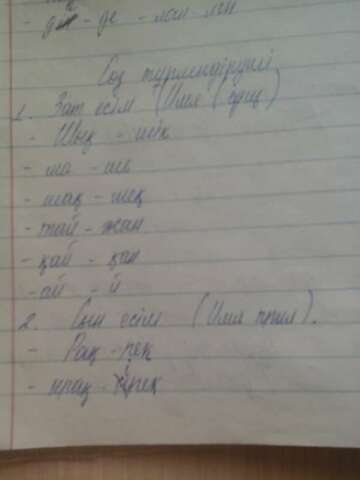 - де - лын - лін
Сөз түрлендіруші
1. Зат есім (Имя сущ)
- Шық - шік
- ша - ше
- шақ - шек
- тай - жан
- қай - қан
- ай - й
2. Сын есім (Имя прил).
- Рақ - рек
- ырақ - ірек